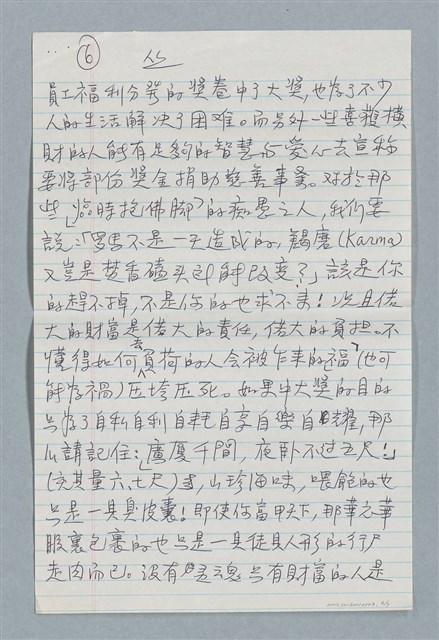 ⑥
員工福利分發的獎卷中了大獎，也為了不少
人的生活解决了困难。而另外一些喜獲橫
財的人能有足夠的智慧与愛心去宣称
要将部份奬金捐助慈善事業。对於那
些「临時抱佛脚」的痴愚之人，我们要
說：「罗馬不是一天造成的，羯磨(Karma)
又豈是焚香磕头所能改变？」該是你
的趕不掉，不是你的也求不来！況且偌
大的財富是偌大的責任，偌大的負担。不
懂得如何去負荷的人会被乍来的福（也可
能為禍）压垮压死。如果中大奬的目的
只為了自私自利自耗自享自樂自耀，那
么請記住：「廣厦千間，夜卧不过五尺！」
(充其量六、七尺)，山珍海味，喂飽的也
只是一具臭皮囊！即使你富甲天下，那華衣華
服裹包裹的也只是一具徒具人形的行尸
走肉而已。没有灵魂只有財富的人是